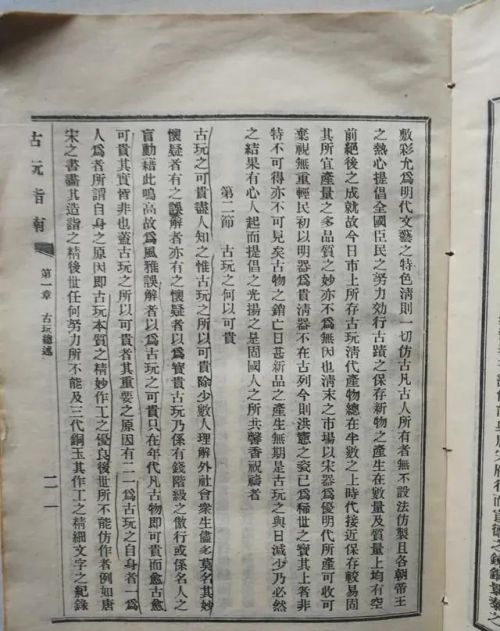 敷彩尤為明代文藝之特色淸則一切仿古凡古人所有者無不設法仿製且各朝帝王
之熱心提倡全國臣民之努力効行古蹟之保存新物之產生在數量及質量上均有空
前絕後之成就故今日市上所存古玩淸代產物總在半數之上時代接近保存較易固
其所宜產量之多品質之妙亦不為無因也淸末之市場以宋器為優明代所產可收可
棄視無重輕民初以明器為貴淸器不在古列今則洪憲之瓷已為稀世之寶其上者非
特不可得亦不可見矣古物之銷亡日甚新品之產生無期是古玩之與日減少乃必然
之結果有心人起而提倡之光揚之是固國人之所共馨香祝禱者
第二節 古玩之何以可貴
古玩之可貴盡人知之惟古玩之所以可貴除少數人理解外社會衆生儘多莫名其妙
懷疑者有之誤解者亦有之懷疑者以為寶貴古玩乃係有錢階級之傲行或係名人之
盲動藉此鳴高故為風雅誤解者以為古玩之可貴只在年代凡古物即可貴而愈古愈
可貴其實皆非也蓋古玩之所以可貴者其重要之原因有二一為古玩之自身者一為
人為者所謂自身之原因即古玩本質之精妙作工之優良後世所不能仿作者例如唐
宋之書畫其造詣之精後世任何努力所不能及三代銅玉其作工之精細文字之紀錄
古玩指南 第一章 古玩總述 一一